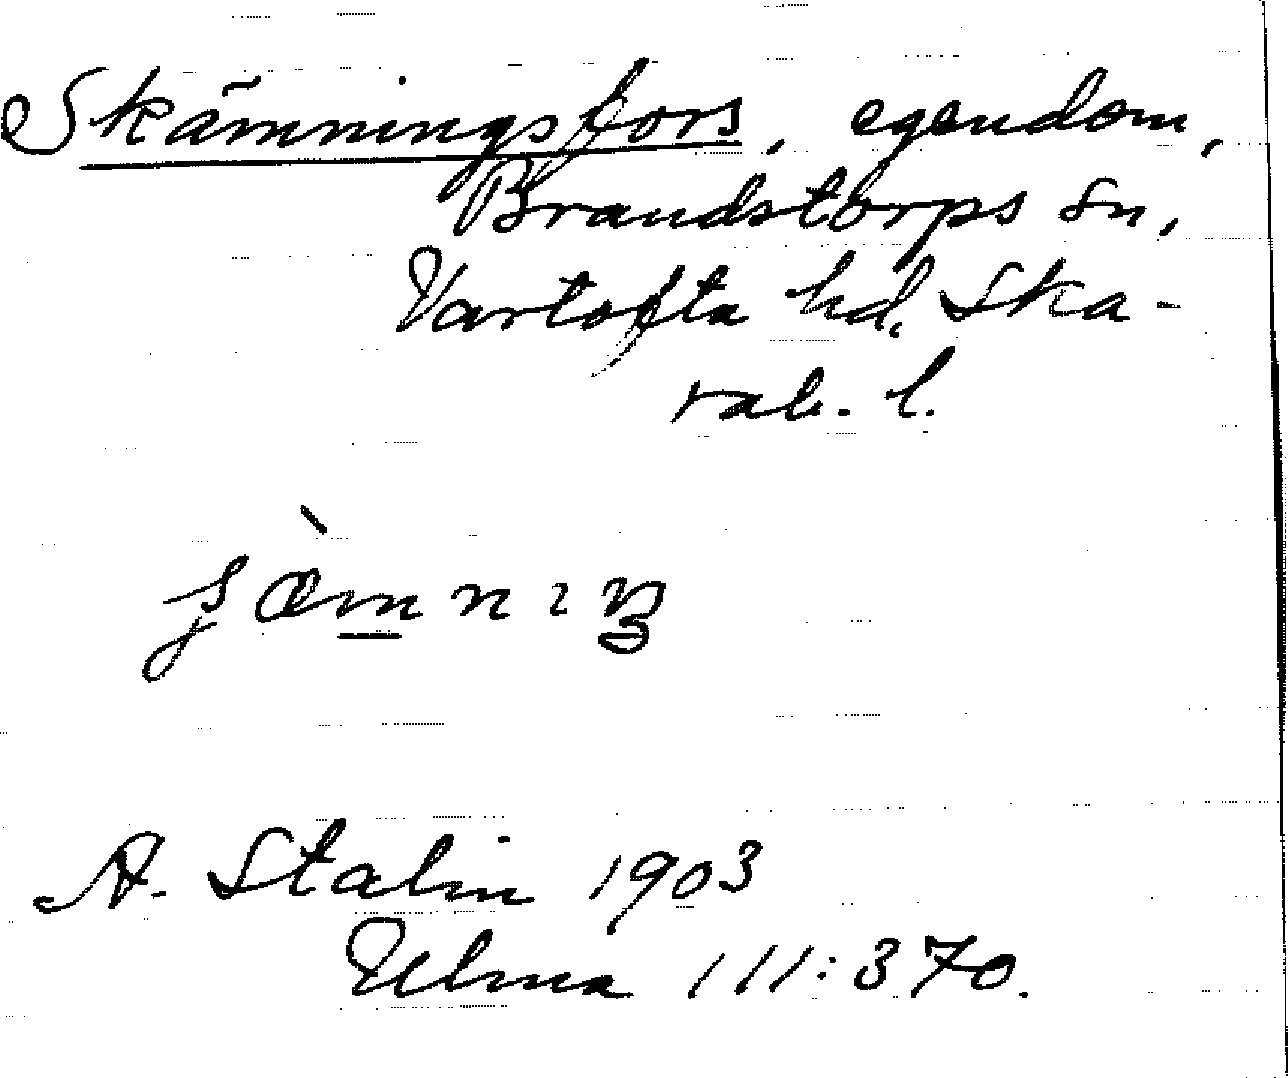 Skämningsfors, egendom,
Brandstorps sn,
Vartofta hd, Ska-
rab. l.
A. Stalin 1903
Ulma 111:370.